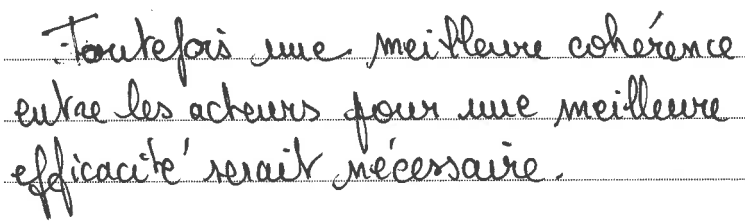 Toutefois une meilleure cohérence
entre les acteurs pour une meilleure
efficacité serait nécessaire.